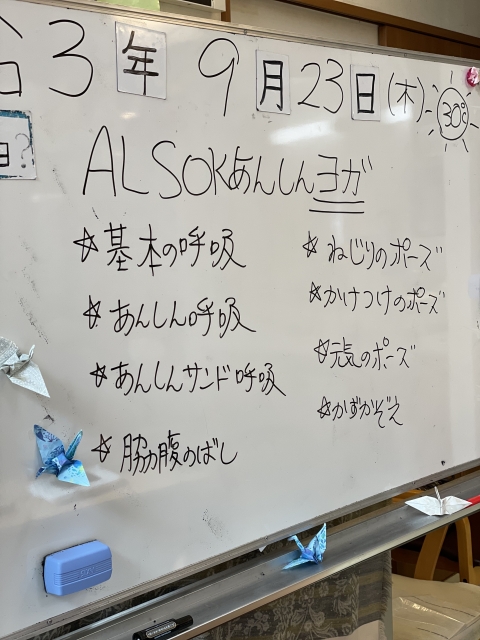 3年 9月23日(木) 30℃
日?
ALSOKあんしんヨガ
☆基本の呼吸
☆あんしん呼吸
☆あんしんサンド呼吸
☆脇腹のばし
☆ねじりのポーズ
☆かけつけのポーズ
☆元気のポーズ
☆かずかぞえ